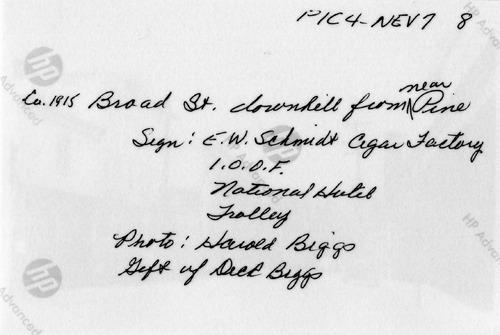 PIC4-NEV7 8
near
Ca. 1915 Broad St. downhill from ^ Pine
Sign: E.W. Schmidt Cigar Factory
I.O.O.F.
National Hotel
Trolley
Photo: Harold Biggs
Gift of Dick Biggs
hp
Advanced
hp
Advanced
hp
Advanced